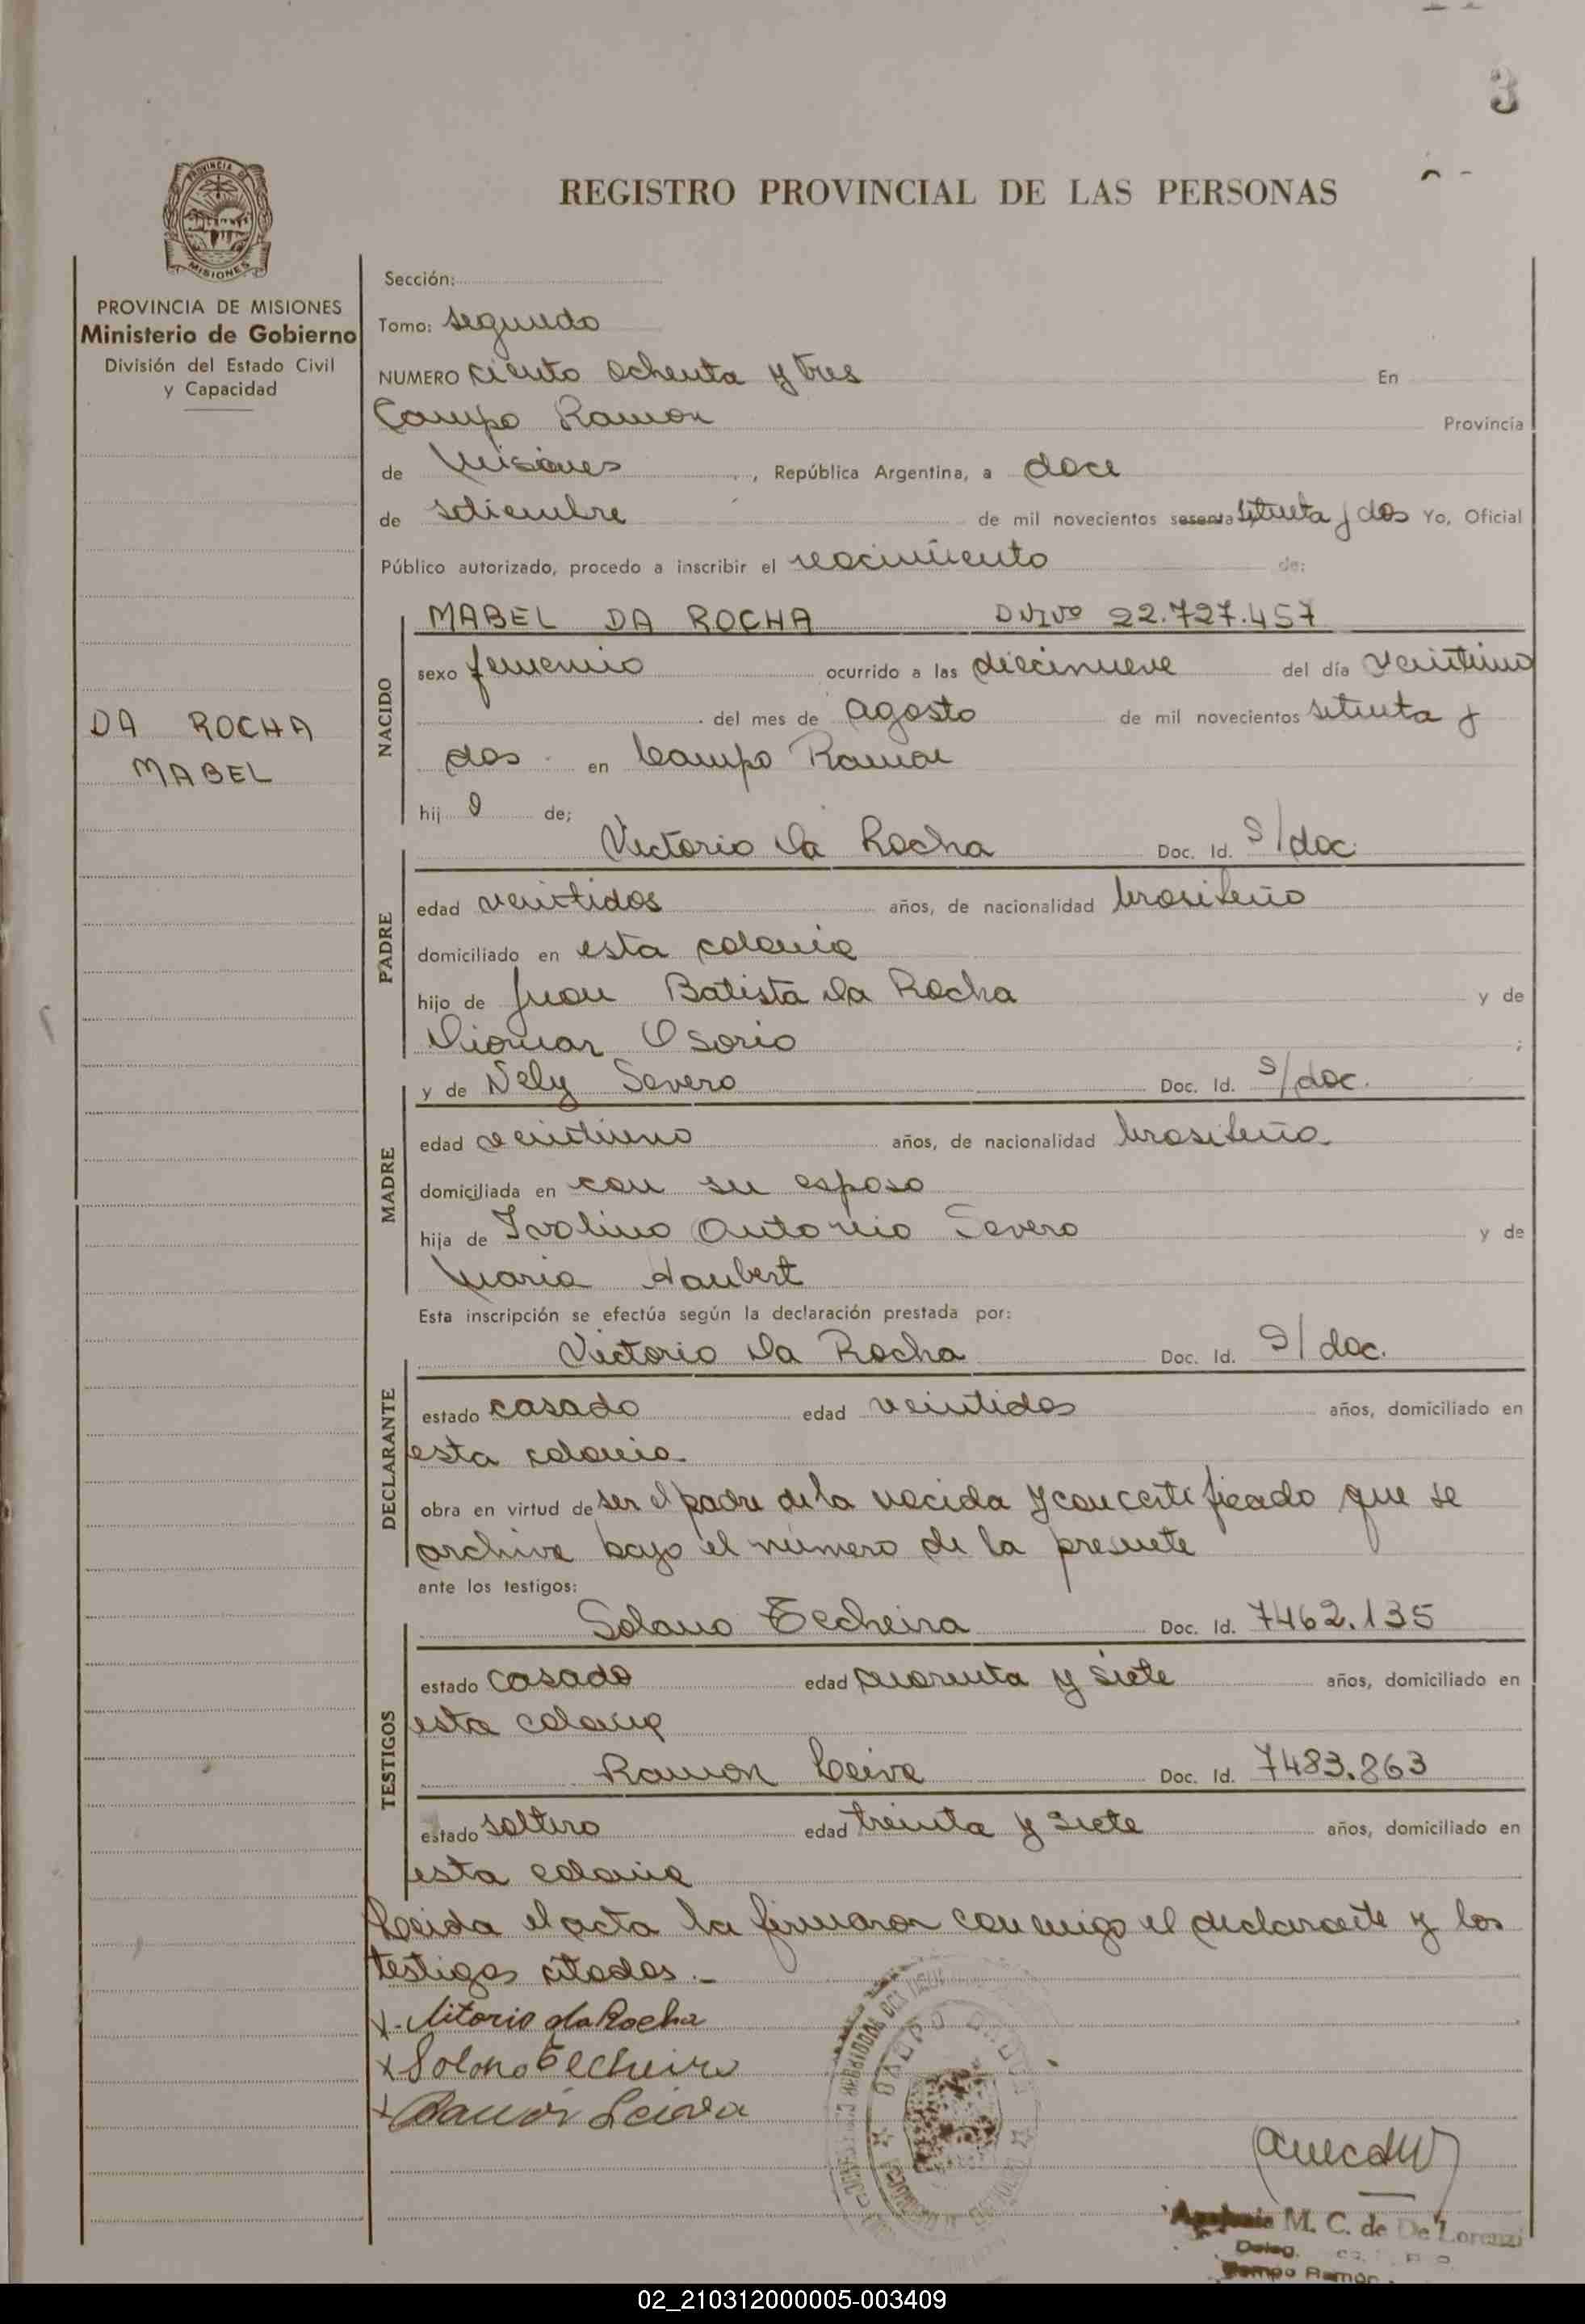 3
REGISTRO PROVINCIAL DE LAS PERSONAS
PROVINCIA DE
MISIONES
PROVINCIA DE MISIONES
Ministerio de Gobierno
División del Estado Civil
y Capacidad
DA ROCHA
MABEL
Sección:
Tomo: segundo
NUMERO ciento ochenta y tres En
Campo Ramon Provincia
de Misiones, República Argentina, a doce
de setiembre de mil novecientos sesenta setenta y dos Yo, Oficial
Público autorizado, procedo a inscribir el nacimiento de:
NACIDO
MABEL DA ROCHA DNI Nº 22.727.457
sexo femenino ocurrido a las diecinueve del día veintiuno
del mes de agosto de mil novecientos setenta y
dos en Campo Ramon
hij a de;
PADRE
Victorio da Rocha Doc. Id. S/doc.
edad veintidos años, de nacionalidad brasileño
domiciliado en esta colonia
hijo de Juan Batista da Rocha y de
Diomar Osorio ;
MADRE
y de Nely Severo Doc. Id. S/doc.
edad veintiuno años, de nacionalidad brasileña
domiciliada en con su esposo
hija de Ivolino Antonio Severo y de
Maria Haubert
Esta inscripción se efectúa según la declaración prestada por:
DECLARANTE
Victorio da Rocha Doc. Id. S/doc.
estado casado edad veintidos años, domiciliado en
esta colonia
obra en virtud de ser el padre de la nacida y con certificado que se
archiva bajo el número de la presente
ante los testigos:
TESTIGOS
Solano Techeira Doc. Id. 7462.135
estado casado edad cuarenta y siete años, domiciliado en
esta colonia
Ramon Leiva Doc. Id. 7483.863
estado soltero edad treinta y siete años, domiciliado en
esta colonia
Leida el acta la firmaron conmigo el declarante y los
testigos citados.-
x. Vitorio da Rocha
x Solano Techeira
x Ramón Leiva
M. C. de De Lorenzi
Deleg.
Campo Ramón
02_210312000005-003409